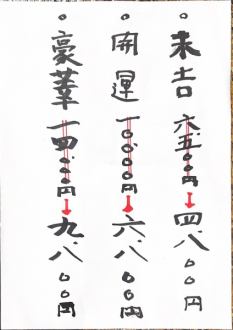 ○末吉 六五〇〇円→四、八〇〇円
○開運 一〇、〇〇〇円→六、八〇〇円
○豪華 一四、〇〇〇円→九、八〇〇円